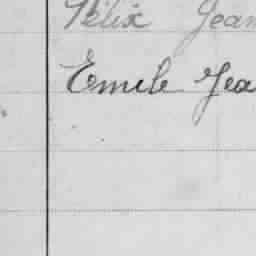 Félix Jean
Emile Jea